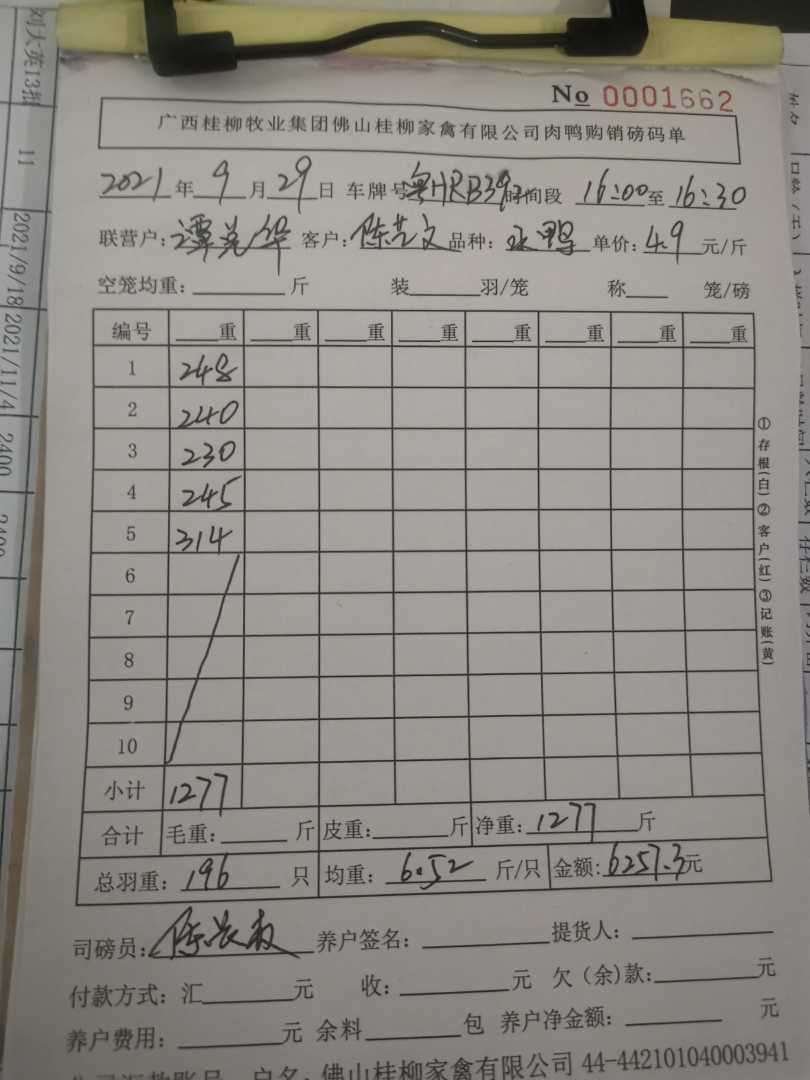 No 0001662
广西桂柳牧业集团佛山桂柳家禽有限公司肉鸭购销磅码单
2021年9月29日 车牌号粤HRB39 时间段 16:00至16:30
联营户:谭 华 客户:陈艺文 品种: 鸭 单价:4.9元/斤
空笼均重: 斤 装 羽/笼 称 笼/磅
编号 重 重 重 重 重 重 重 重
1 248
2 240
3 230
4 245
5 314
6
7
8
9
10
小计 1277
合计 毛重: 斤 皮重: 斤 净重:1277斤
总羽重:196只 均重:6.52斤/只 金额:6257.3元
①存根(白)②客户(红)③记账(黄)
司磅员: 养户签名: 提货人:
付款方式:汇 元 收: 元 欠(余)款: 元
养户费用: 元 余料 包 养户净金额: 元
户名:佛山桂柳家禽有限公司 44-442101040003941
刘大英13
11
2021/9/18
2021/11/4
2400
2400